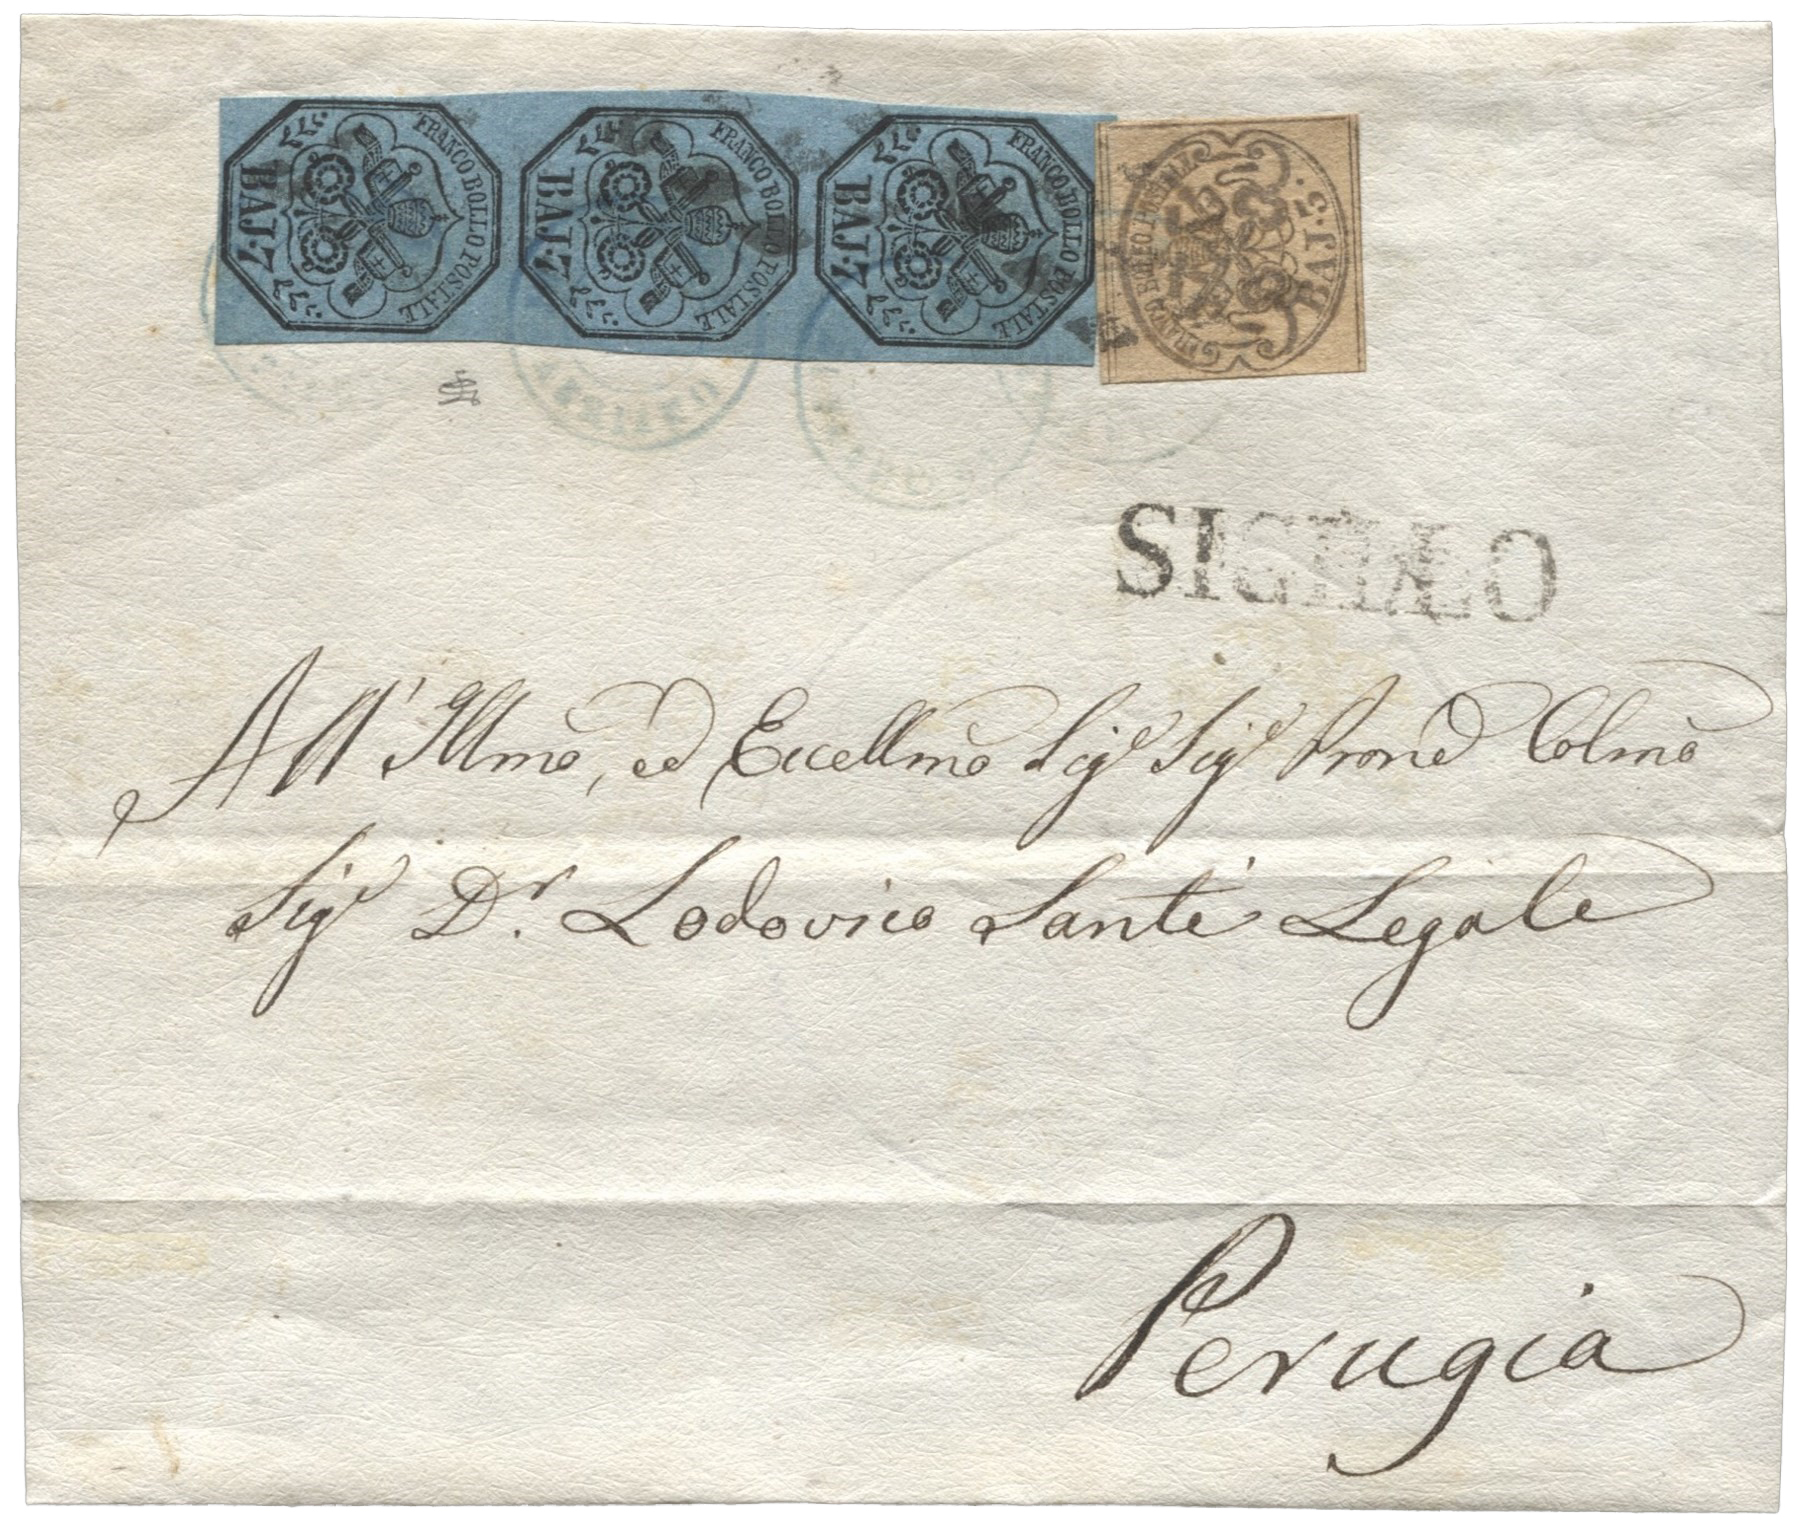 FRANCO BOLLO POSTALE BAJ·7
FRANCO BOLLO POSTALE BAJ·7
FRANCO BOLLO POSTALE BAJ·7
BAJ. 5.
SIGILLO
All' Illmo, ed Eccellmo Sigr Sigr Prone Colmo
Sigr Dr. Lodovico Santi Legale
Perugia